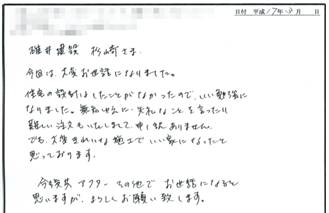 日付 平成17年9月 日
碓井建設 杉崎さま.
今回は、大変お世話になりました。
住宅の設計はしたことがなかったので、いい勉強に
なりました。無知ゆえに、失礼なことを言ったり
難しい注文もいたしまして、申し訳ありません.
でも、大変きれいな施工でいい家になったと
思っております.
今後共アフターその他で お世話になると
思いますが、よろしくお願い致します。